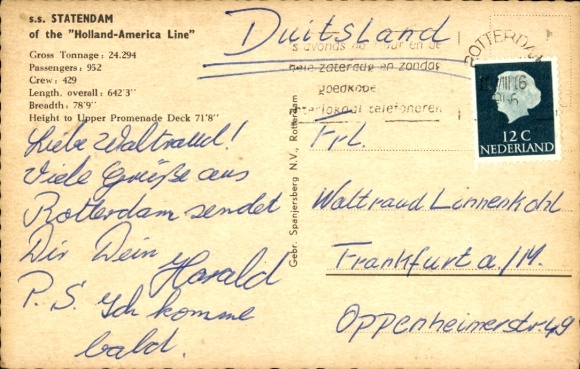 s.s. STATENDAM
of the "Holland-America Line"
Gross Tonnage: 24.294
Passengers: 952
Crew: 429
Length. overall: 642'3"
Breadth: 78'9"
Height to Upper Promenade Deck 71'8"
Liebe Waltraud!
Viele Grüße aus
Rotterdam sendet
Dir Dein
Harald
P.S. Ich komme
bald.
Gebr. Spanjersberg N.V., Rotterdam
Duitsland
s avonds na uur en de
hele zaterdag en zondag
goedkope
interlokaal telefoneren
ROTTERDAM
12 C
NEDERLAND
Frl.
Waltraud Lönnenkohl
Frankfurt a./M.
Oppenheimerstr. 49